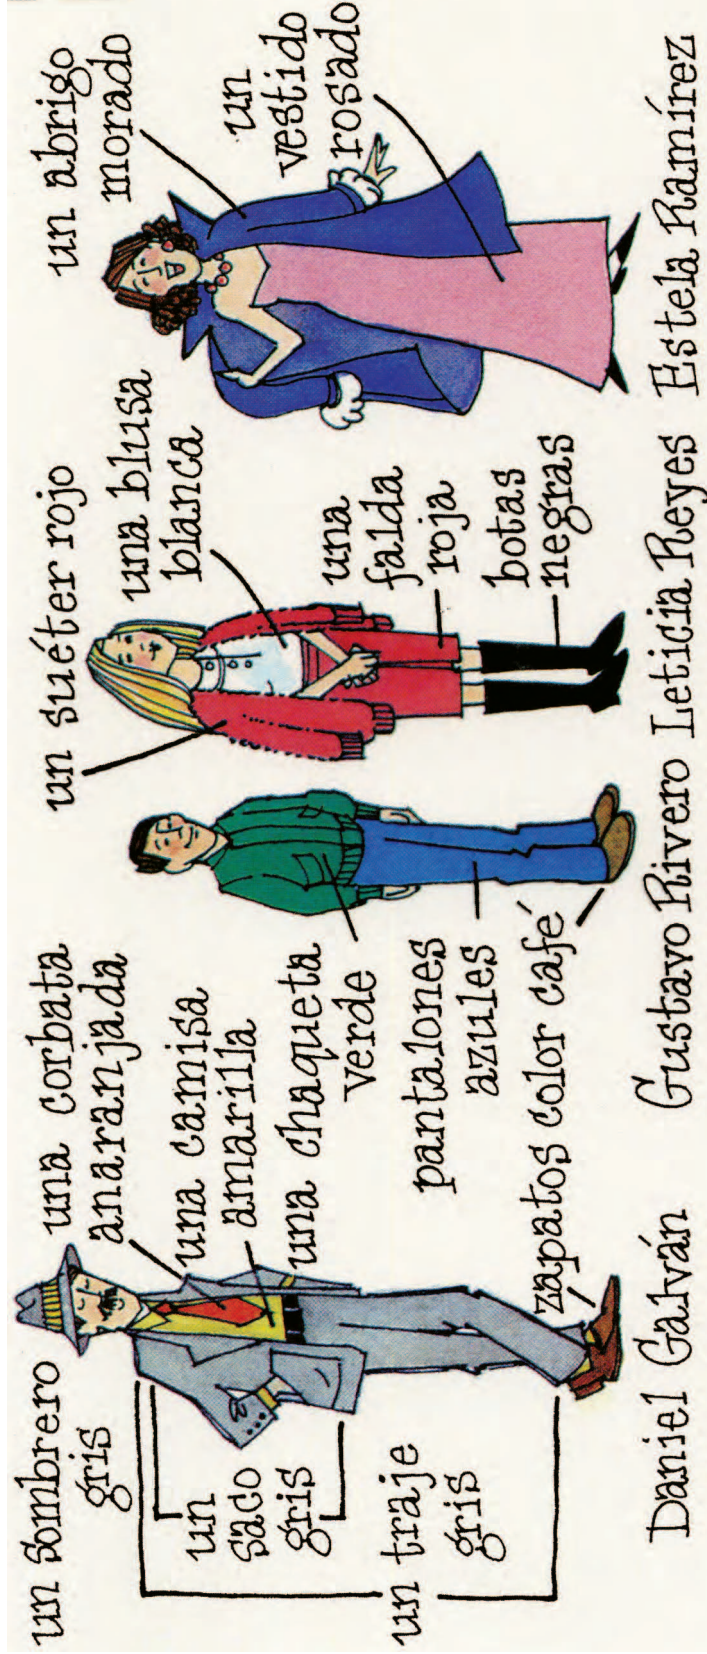 un sombrero
gris
un
saco
gris
un traje
gris
una corbata
anaranjada
una camisa
amarilla
una chaqueta
verde
pantalones
azules
zapatos color café
un suéter rojo
una blusa
blanca
una
falda
roja
botas
negras
un abrigo
morado
un
vestido
rosado
Daniel Galván
Gustavo Rivero
Leticia Reyes
Estela Ramírez